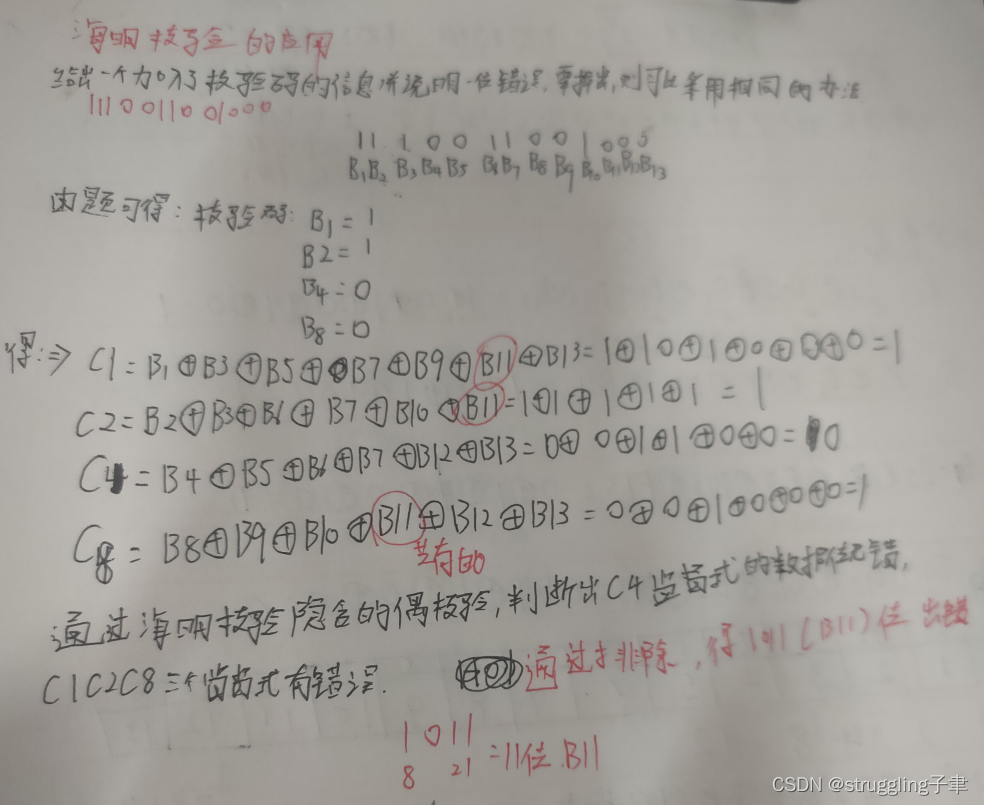 海明校验的应用
给出一个加入了校验码的信息并说明一位错误,要找出,则可以采用相同的办法
1110011001000
11 1 0 0 11 0 0 1 0 0 0
B1B2 B3 B4 B5 B6 B7 B8 B9 B10 B11 B12 B13
由题可得: 校验码: B1 = 1
B2 = 1
B4 = 0
B8 = 0
得:⇒ C1 = B1 ⊕ B3 ⊕ B5 ⊕ B7 ⊕ B9 ⊕ B11 ⊕ B13 = 1 ⊕ 1 0 ⊕ 1 ⊕ 0 ⊕ 0 ⊕ 0 = 1
C2 = B2 ⊕ B3 ⊕ B6 ⊕ B7 ⊕ B10 ⊕ B11 = 1 ⊕ 1 ⊕ 1 ⊕ 1 ⊕ 1 = 1
C4 = B4 ⊕ B5 ⊕ B6 ⊕ B7 ⊕ B12 ⊕ B13 = 0 ⊕ 0 ⊕ 1 ⊕ 1 ⊕ 0 ⊕ 0 = 0
C8 = B8 ⊕ B9 ⊕ B10 ⊕ B11 ⊕ B12 ⊕ B13 = 0 ⊕ 0 ⊕ 1 ⊕ 0 0 0 ⊕ 0 = 1
共有的
通过海明校验隐含的偶校验,判断出C4监督式的数据位没错,
C1C2C8三个监督式有错误. 通过排除,得 1011 (B11) 位 出错
1 0 1 1
8 2 1 = 11位 B11
CSDN @struggling子聿